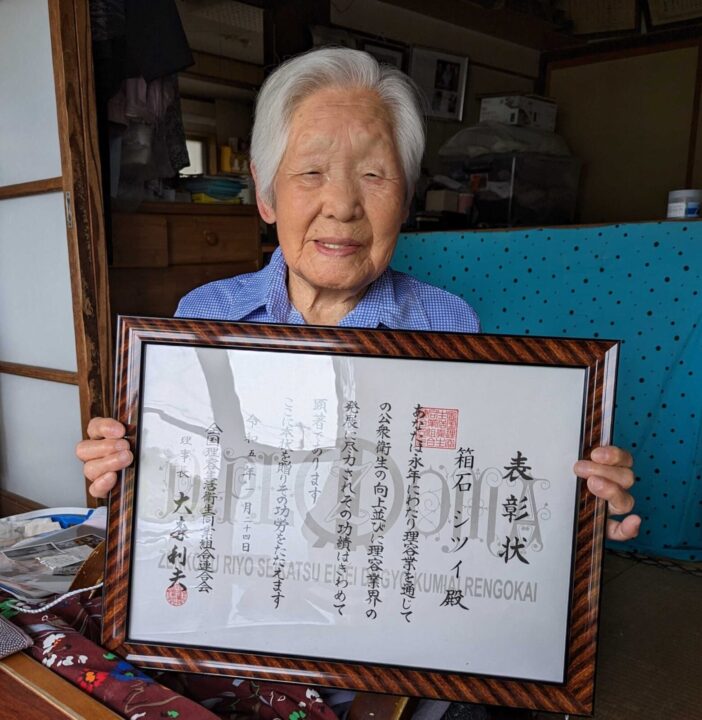 表彰状
箱石 シツイ 殿
あなたは永年にわたり理容業を通じて
の公衆衛生の向上並びに理容業界の
発展に尽力されその功績はきわめて
顕著であります
ここに本状を贈りその功労をたたえます
令和五年 月二十四日
全国理容生活衛生同業組合連合会
理事長 大森利夫
ZENKOKU RIYO SEIKATSU EISEI DOGYO KUMIAI RENGOKAI